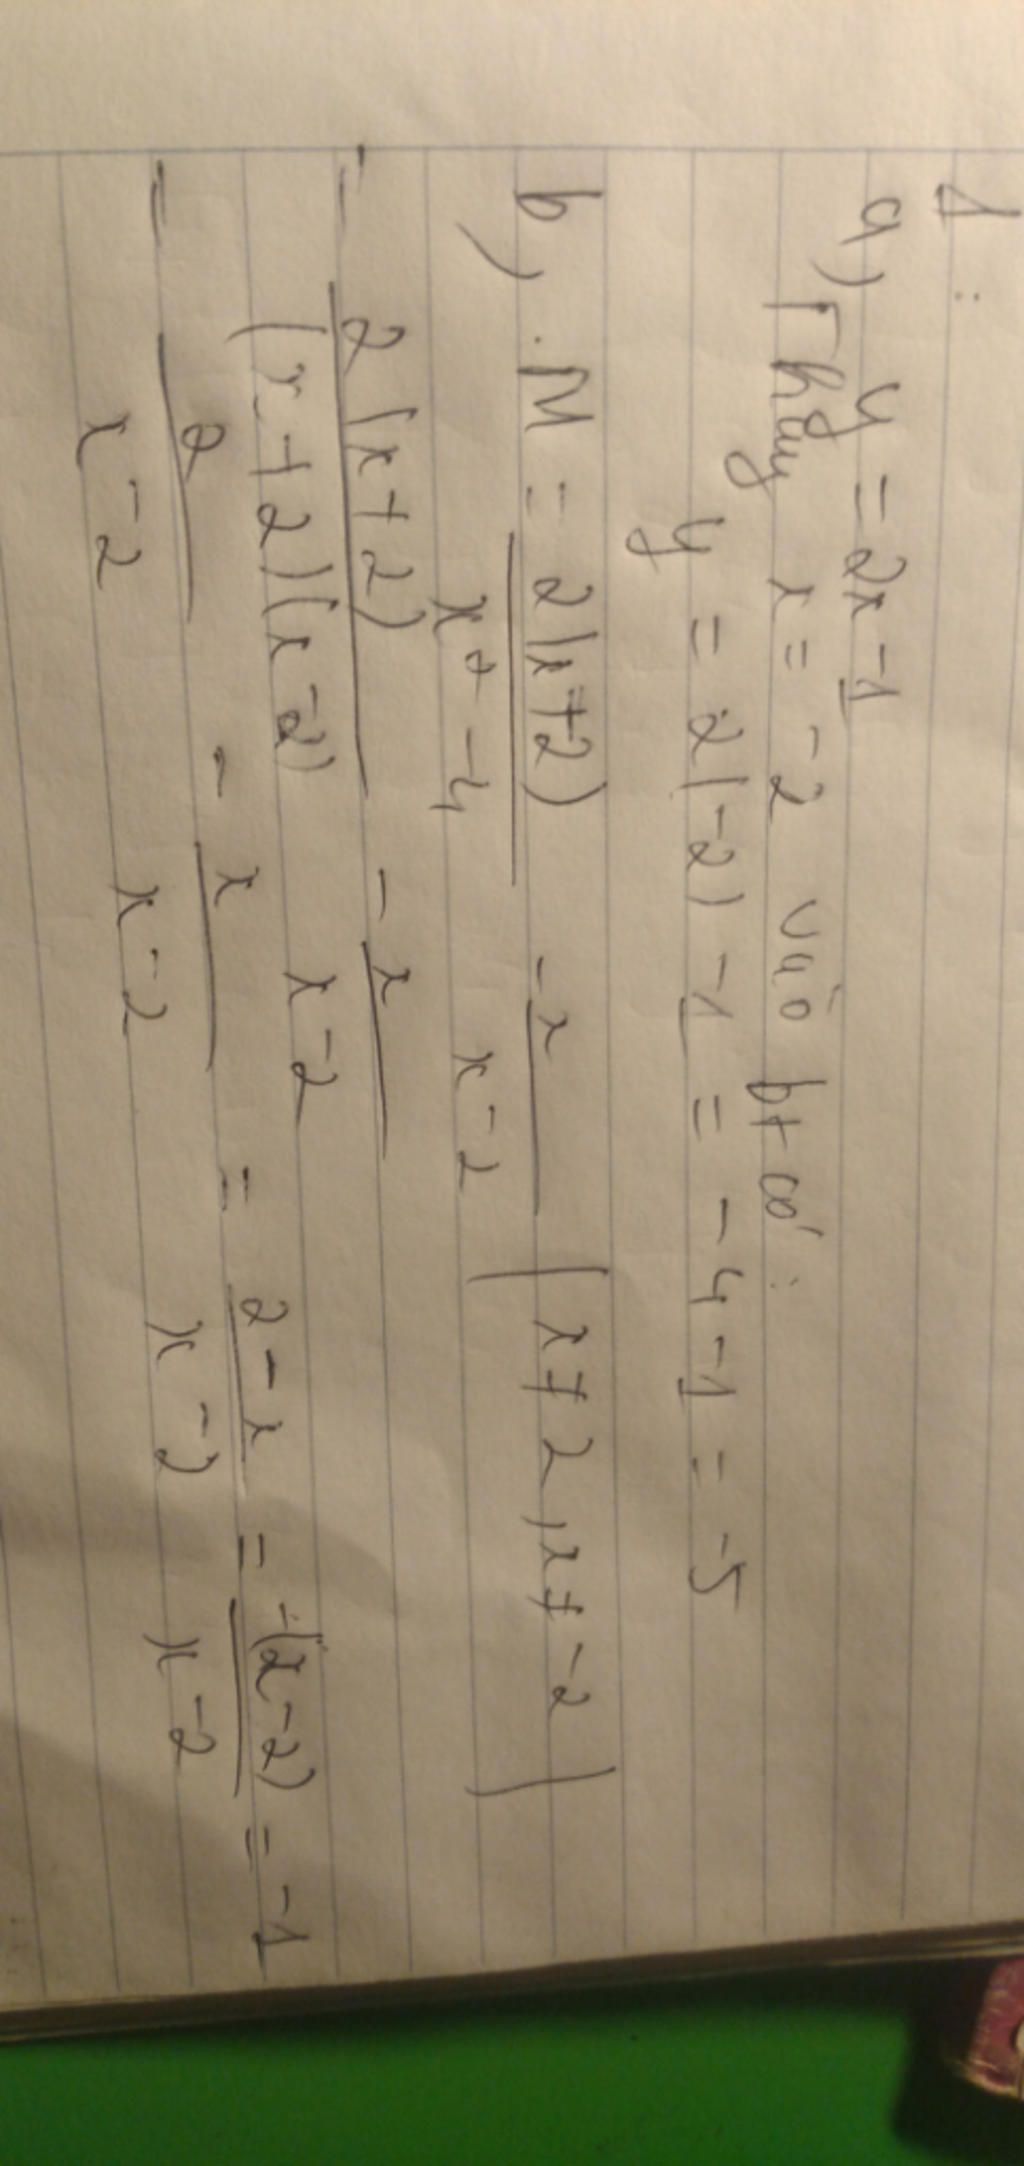 1 :
a, y = 2x - 1
Thay x = -2 vào bt có :
y = 2(-2) - 1 = -4 - 1 = -5
b, M = 2(x+2)/x² - 4 - x/x - 2 (x ≠ 2, x ≠ -2)
= 2(x+2)/(x+2)(x-2) - x/x-2
= 2/x-2 - x/x-2 = 2-x/x-2 = -(x-2)/x-2 = -1